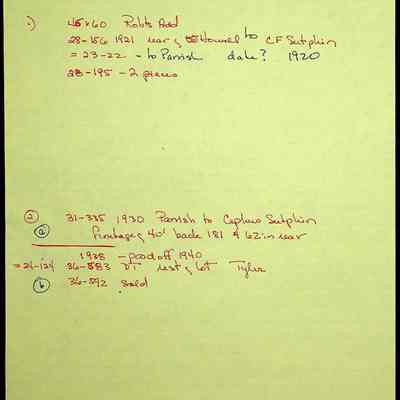 1) 45x60 Robts Add
28-156 1921 rear of Howard to CF Sutphin
= 23-22 - to Parrish date? 1920
28-195 - 2 pieces
2) 31-335 1930 Parrish to Cephas Sutphin
a Frontage of 40' back 181 & 62 in rear
1938 - pood off 1940
= 24-124 36-583 DT rest of lot Tyler
b 36-592 sold